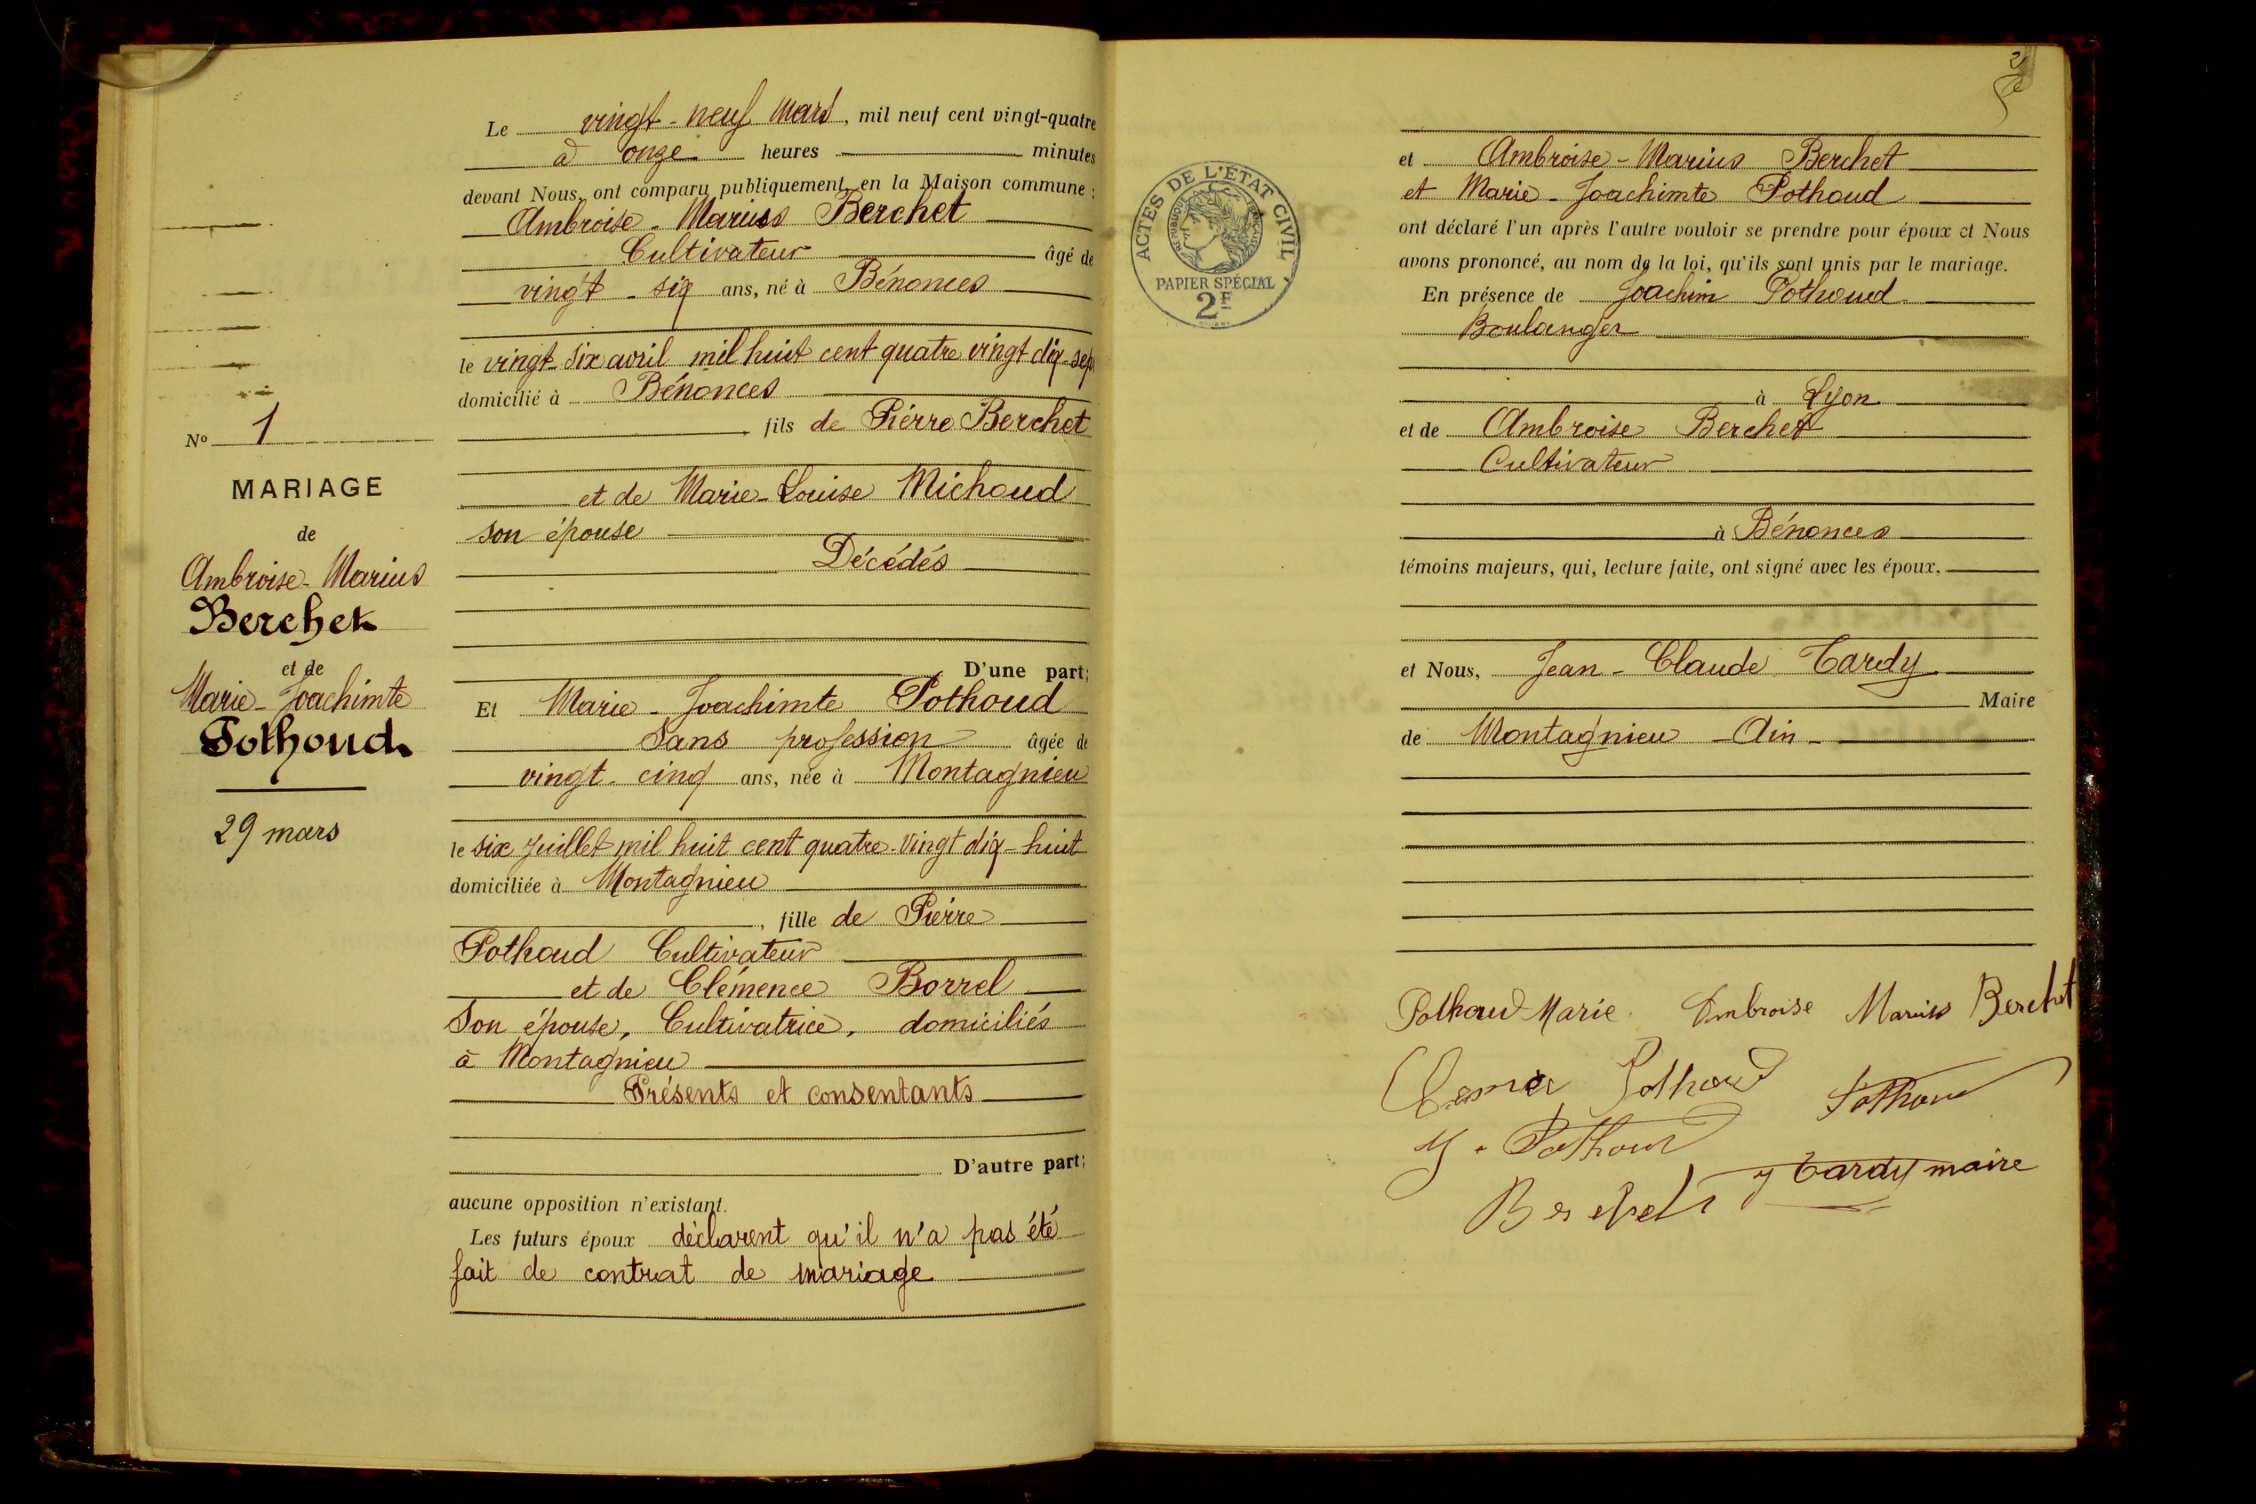 N° 1
MARIAGE
de
Ambroise-Marius
Berchet
et de
Marie-Joachimte
Pothoud
29 mars
Le vingt-neuf mars, mil neuf cent vingt-quatre
à onze heures minutes
devant Nous, ont comparu publiquement en la Maison commune :
Ambroise-Marius Berchet
Cultivateur âgé de
vingt-six ans, né à Bénonces
le vingt-six avril mil huit cent quatre vingt dix-sept
domicilié à Bénonces
, fils de Piérre Berchet
et de Marie-Louise Michoud
son épouse
Décédés
D'une part;
Et Marie-Joachimte Pothoud
Sans profession âgée de
vingt-cinq ans, née à Montagnieu
le six juillet mil huit cent quatre-vingt dix-huit
domiciliée à Montagnieu
, fille de Pierre
Pothoud Cultivateur
et de Clémence Borrel
Son épouse, Cultivatrice, domiciliés
à Montagnieu
Présents et consentants
D'autre part;
aucune opposition n'existant.
Les futurs époux déclarent qu'il n'a pas été
fait de contrat de mariage
ACTES DE L'ÉTAT CIVIL
RÉPUBLIQUE FRANÇAISE
PAPIER SPÉCIAL
2F
2
et Ambroise-Marius Berchet
et Marie-Joachimte Pothoud
ont déclaré l'un après l'autre vouloir se prendre pour époux et Nous
avons prononcé, au nom de la loi, qu'ils sont unis par le mariage.
En présence de Joachim Pothoud
Boulanger
à Lyon
et de Ambroise Berchet
Cultivateur
à Bénonces
témoins majeurs, qui, lecture faite, ont signé avec les époux.
et Nous, Jean-Claude Tardy
Maire
de Montagnieu - Ain -
Pothoud Marie Ambroise Marius Berchet
Pothoud Pothoud
J. Pothoud
Berchet Tardy maire